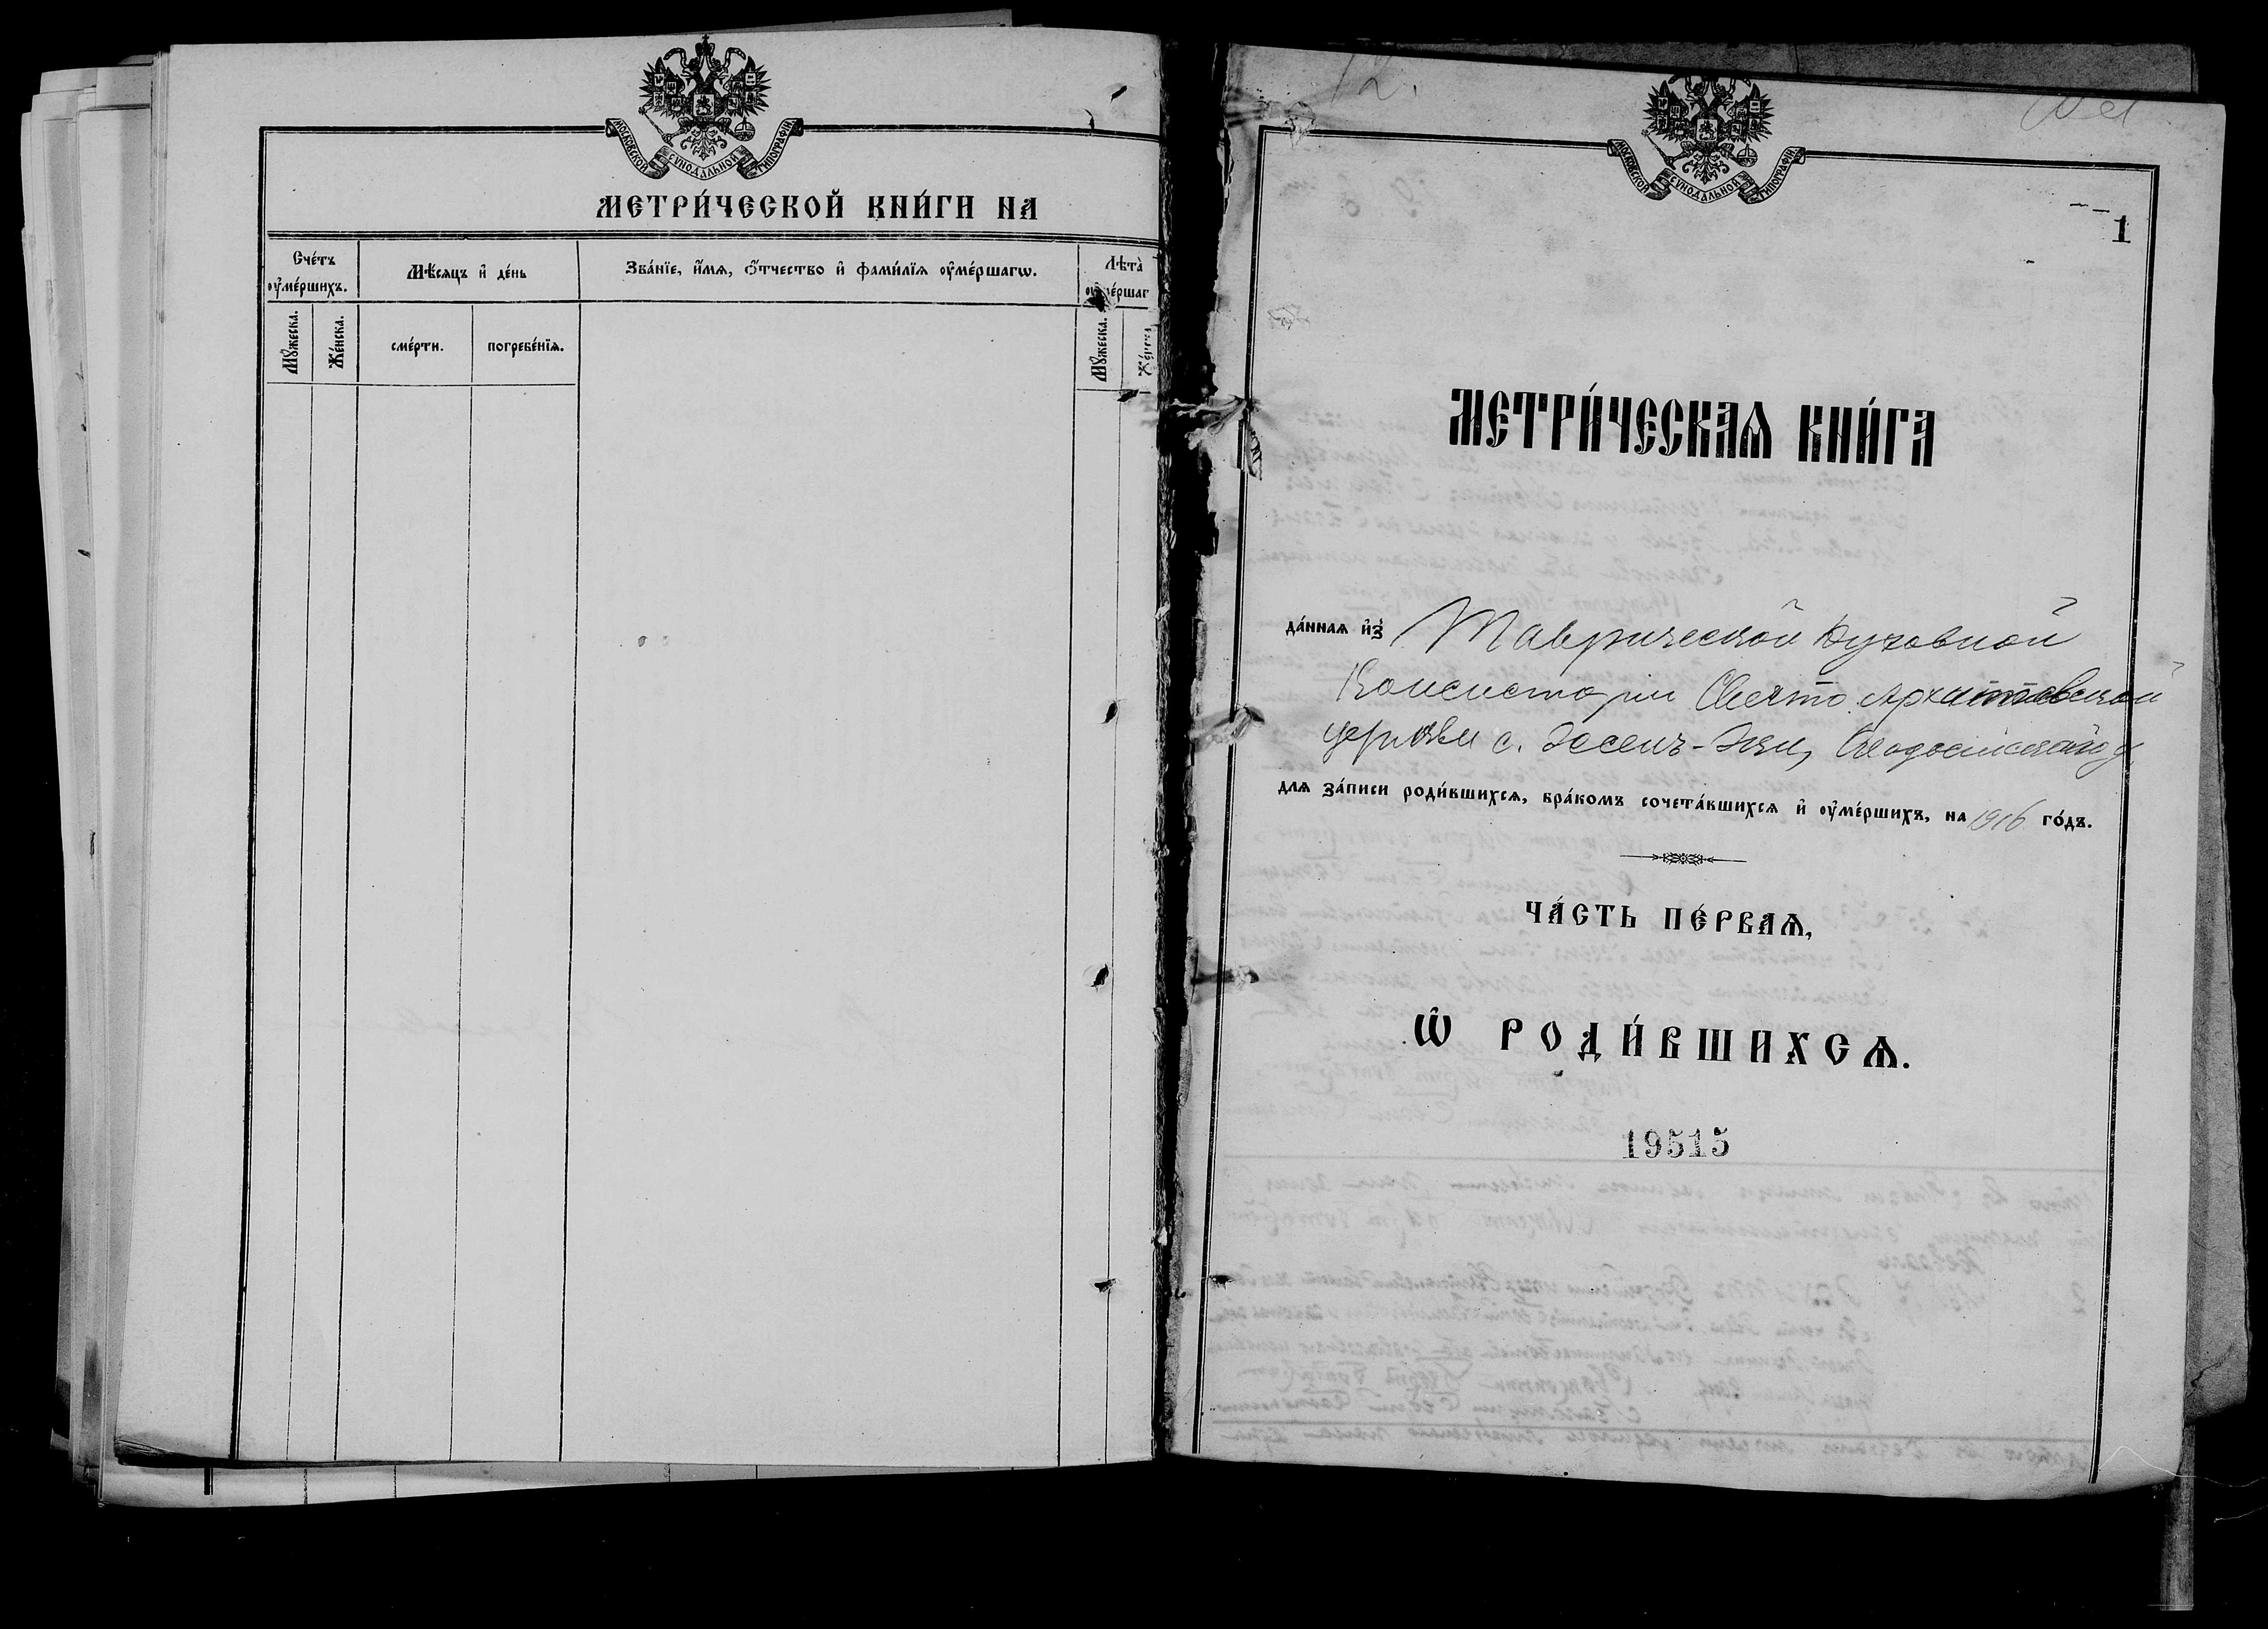 МОСКОВСКОЙ СѴНОДАЛЬНОЙ ТИПОГРАФІИ.
МЕТРИ́ЧЕСКОЙ КНИ́ГИ НА
Сче́тъ ᲂу҆ме́ршихъ.
Мѣ́сяцъ и҆ де́нь
Зва́нїе, и҆́мѧ, ѻ҆́тчество и҆ фами́лїѧ ᲂу҆ме́ршагѡ.
Лѣта̀ ᲂу҆ме́ршаг
Мꙋ́жеска.
Же́нска.
сме́рти.
погребе́нїѧ.
Мꙋ́жеска.
Же́нска
12.
МОСКОВСКОЙ СѴНОДАЛЬНОЙ ТИПОГРАФІИ.
1
МЕТРИ́ЧЕСКАѦ КНИ́ГА
да́ннаѧ и҆з̾ Таврической Духовной
Консисторіи Свято
церкви с. Эссенъ-Эки,
длѧ за́писи роди́вшихсѧ, бра́комъ сочета́вшихсѧ и҆ ᲂу҆ме́ршихъ, на 1916 го́дъ.
ЧА́СТЬ ПЕ́РВАѦ,
Ѡ҆ РОДИ́ВШИХСѦ.
19515